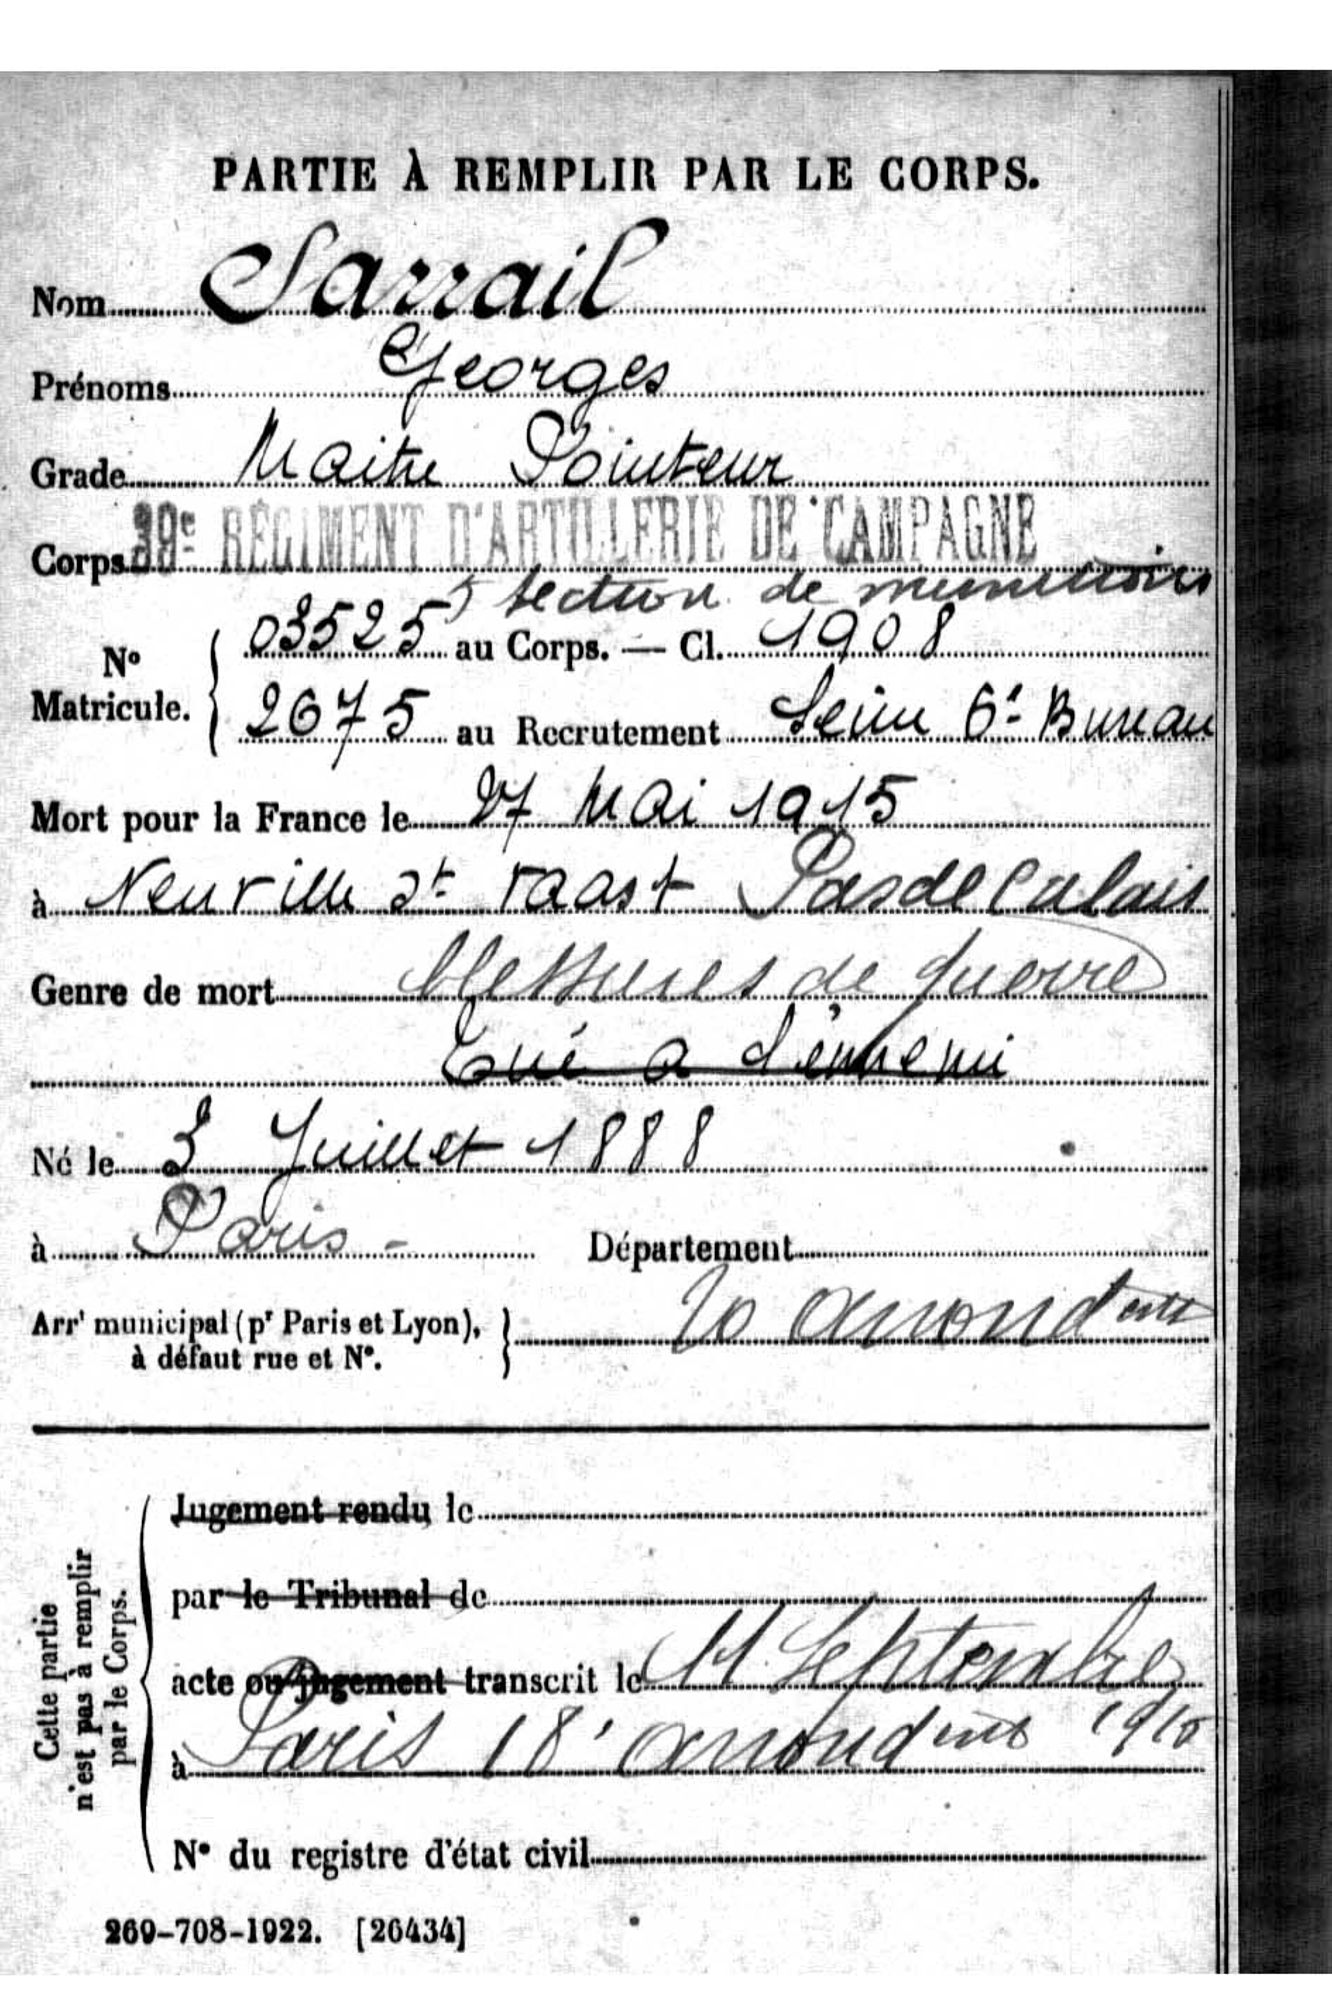 PARTIE À REMPLIR PAR LE CORPS.
Nom Sarrail
Prénoms Georges
Grade Maitre Pointeur
Corps 39e RÉGIMENT D'ARTILLERIE DE CAMPAGNE
5 section de munitions
No Matricule. 03525 au Corps. — Cl. 1908
2675 au Recrutement Seine 6e Bureau
Mort pour la France le 27 Mai 1915
à Neuville St Vaast Pas de Calais
Genre de mort blessures de guerre
Tué a l'ennemi
Né le 3 Juillet 1888
à Paris - Département
Arrt municipal (pr Paris et Lyon), à défaut rue et No. 20 arrondent
Cette partie n'est pas à remplir par le Corps.
Jugement rendu le
par le Tribunal de
acte ou jugement transcrit le 11 Septembre 1915
à Paris 18e arrondent
No du registre d'état civil
269-708-1922. [26434]